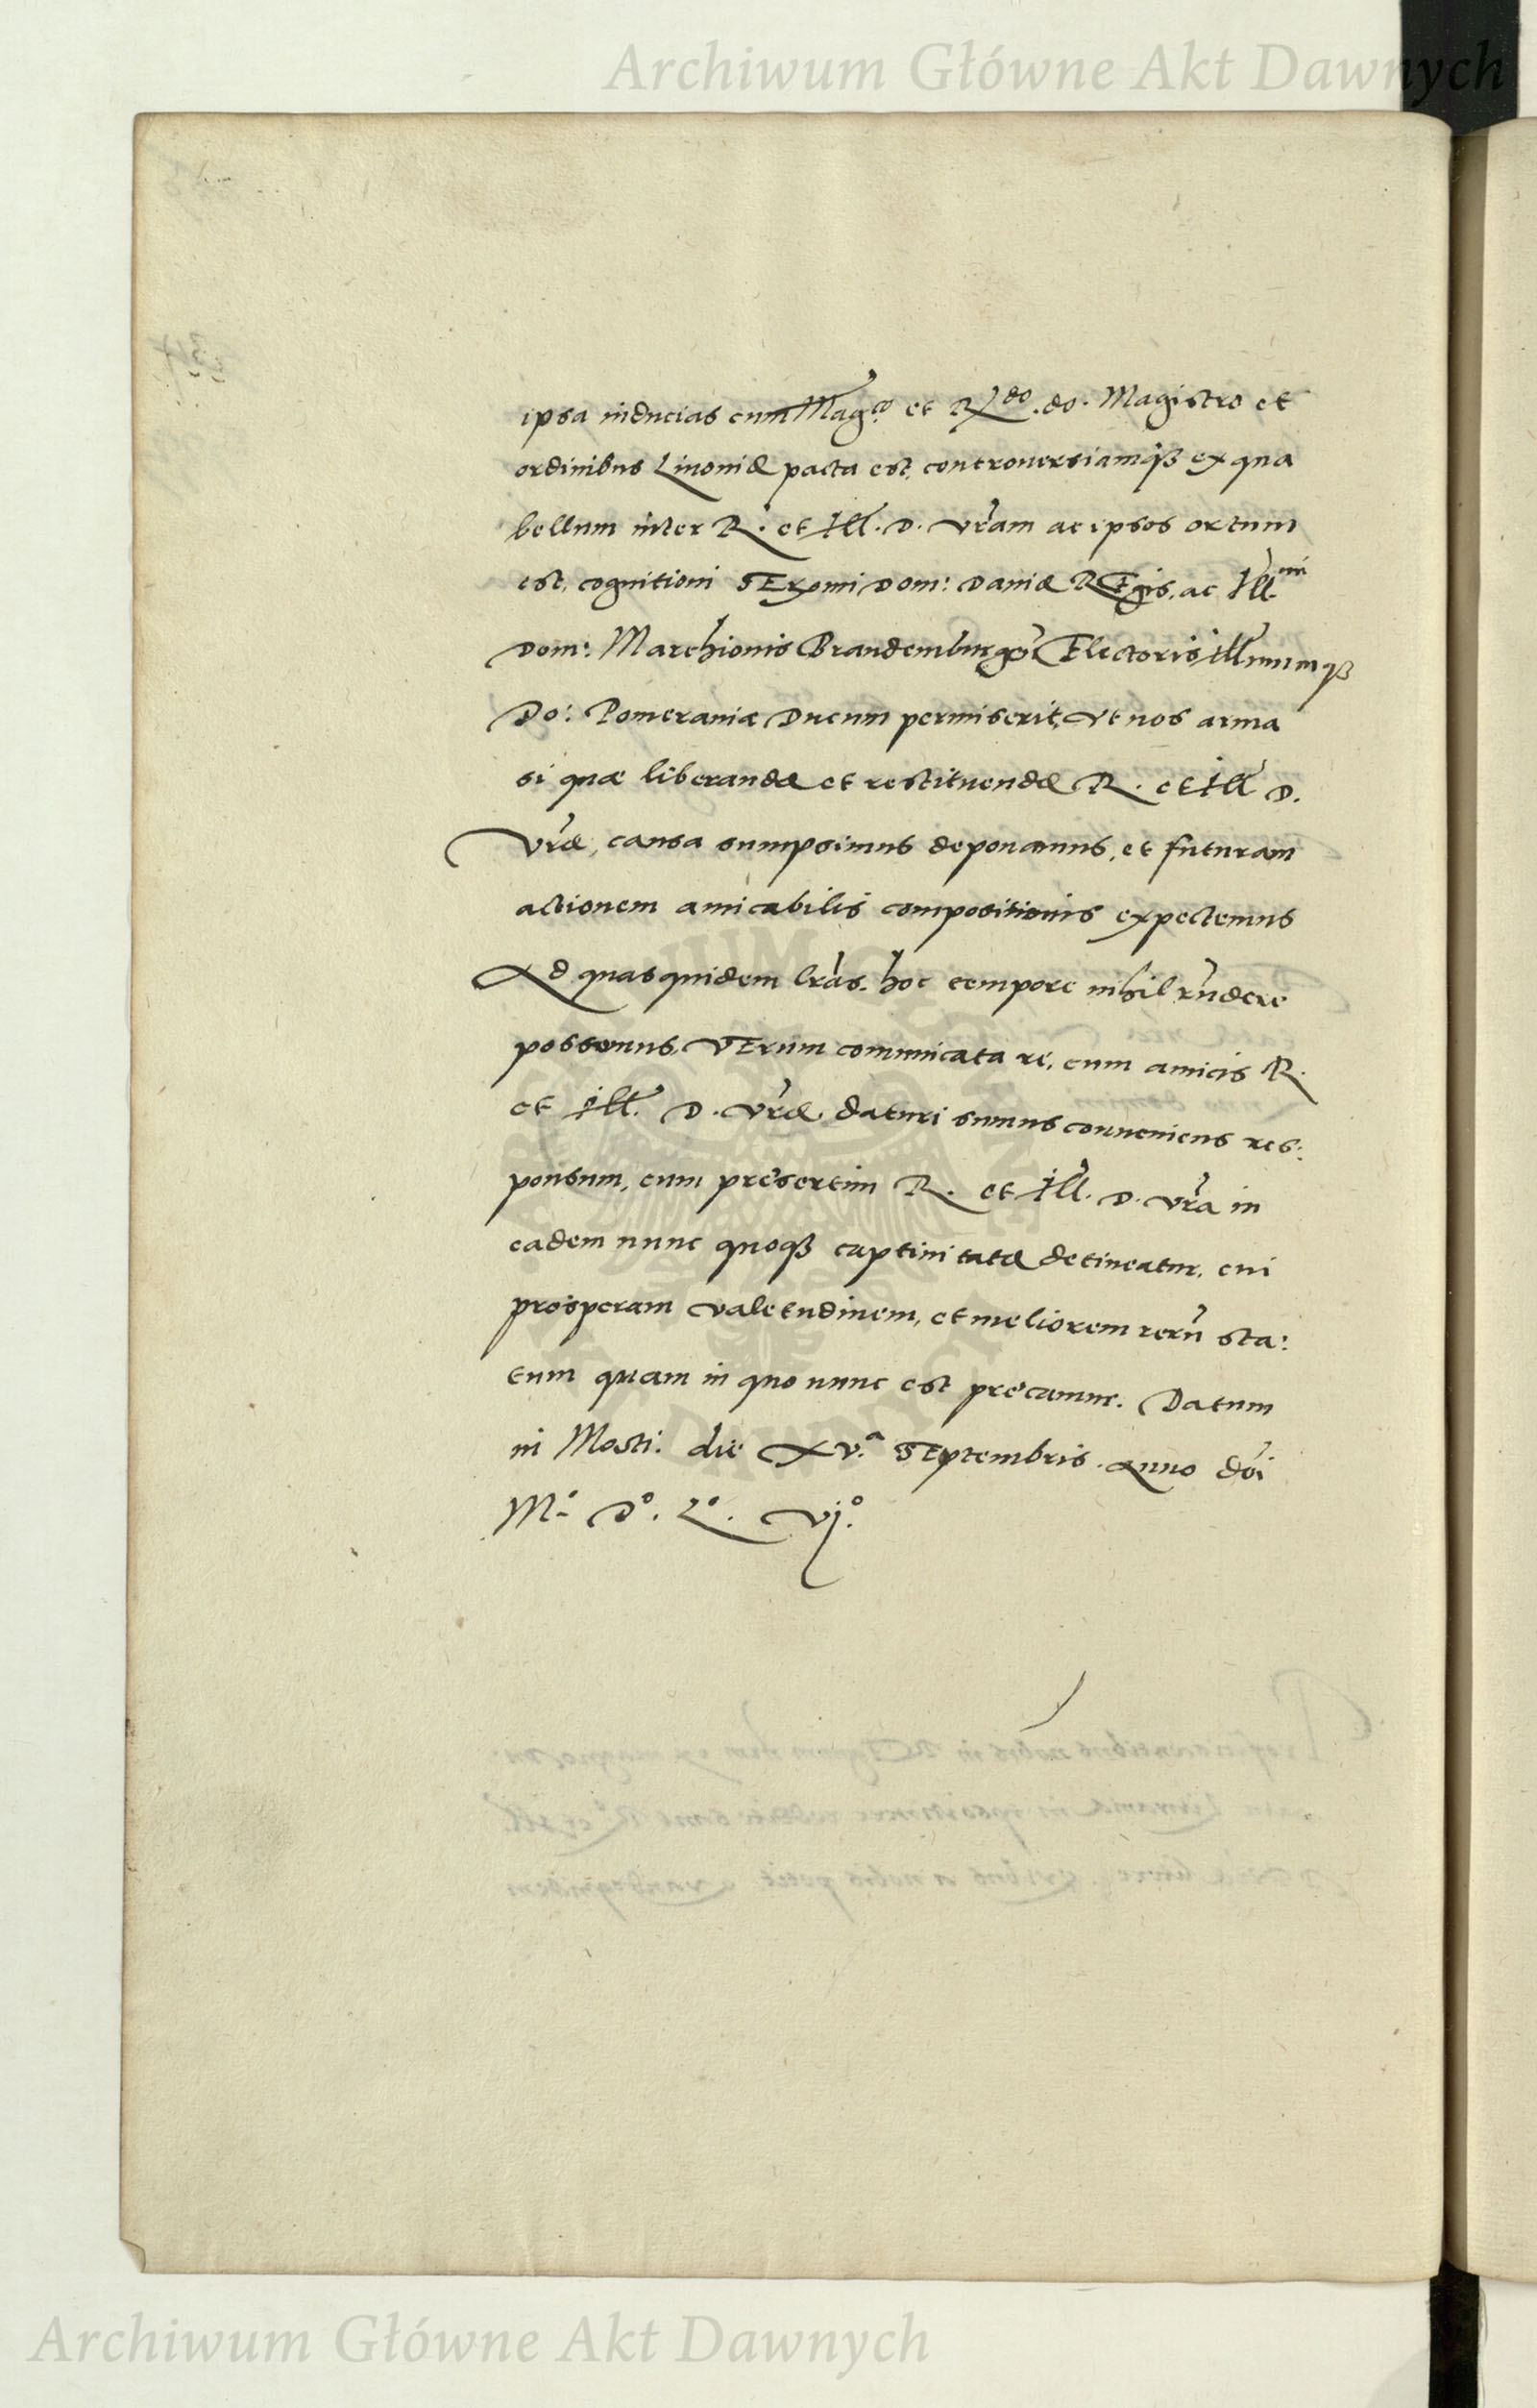 Archiwum Główne Akt Dawnych
ipsa inducias cum Mag.co et R.do do. Magistro et
ordinibus Livoniæ pacta est, controuersiamqȝ ex qua
bellum inter R. et Ill. D. vram ac ipsos ortum
est, cognitioni sermi Dom: Daniæ Regis, ac Ill.mi
Dom: Marchionis Brandemburgen Electoris Illmumqȝ
Do: Pomeraniæ Ducum permiserit, vt nos arma
si quæ liberandæ et restituendæ R. et Ill D.
Vræ, causa sumpsimus deponamus, et futuram
actionem amicabilis compositionis expectemus
Ad quas quidem lras. hoc tempore nihil rndere
possumus, Verum communicata re, cum amicis R.
et Ill. D. vræ daturi sumus conueniens res:
ponsum, cum presertim R. et Ill. D. vra in
eadem nunc quoqȝ captiuitate detineatur. cui
prosperam valetudinem, et meliorem reru sta:
tum quam in quo nunc est precamur. Datum
in Mosti. die XV.a Septembris. Anno doi
Mo. Do. Lo. Vjo.
ARCHIWUM GŁÓWNE AKT DAWNYCH
Archiwum Główne Akt Dawnych